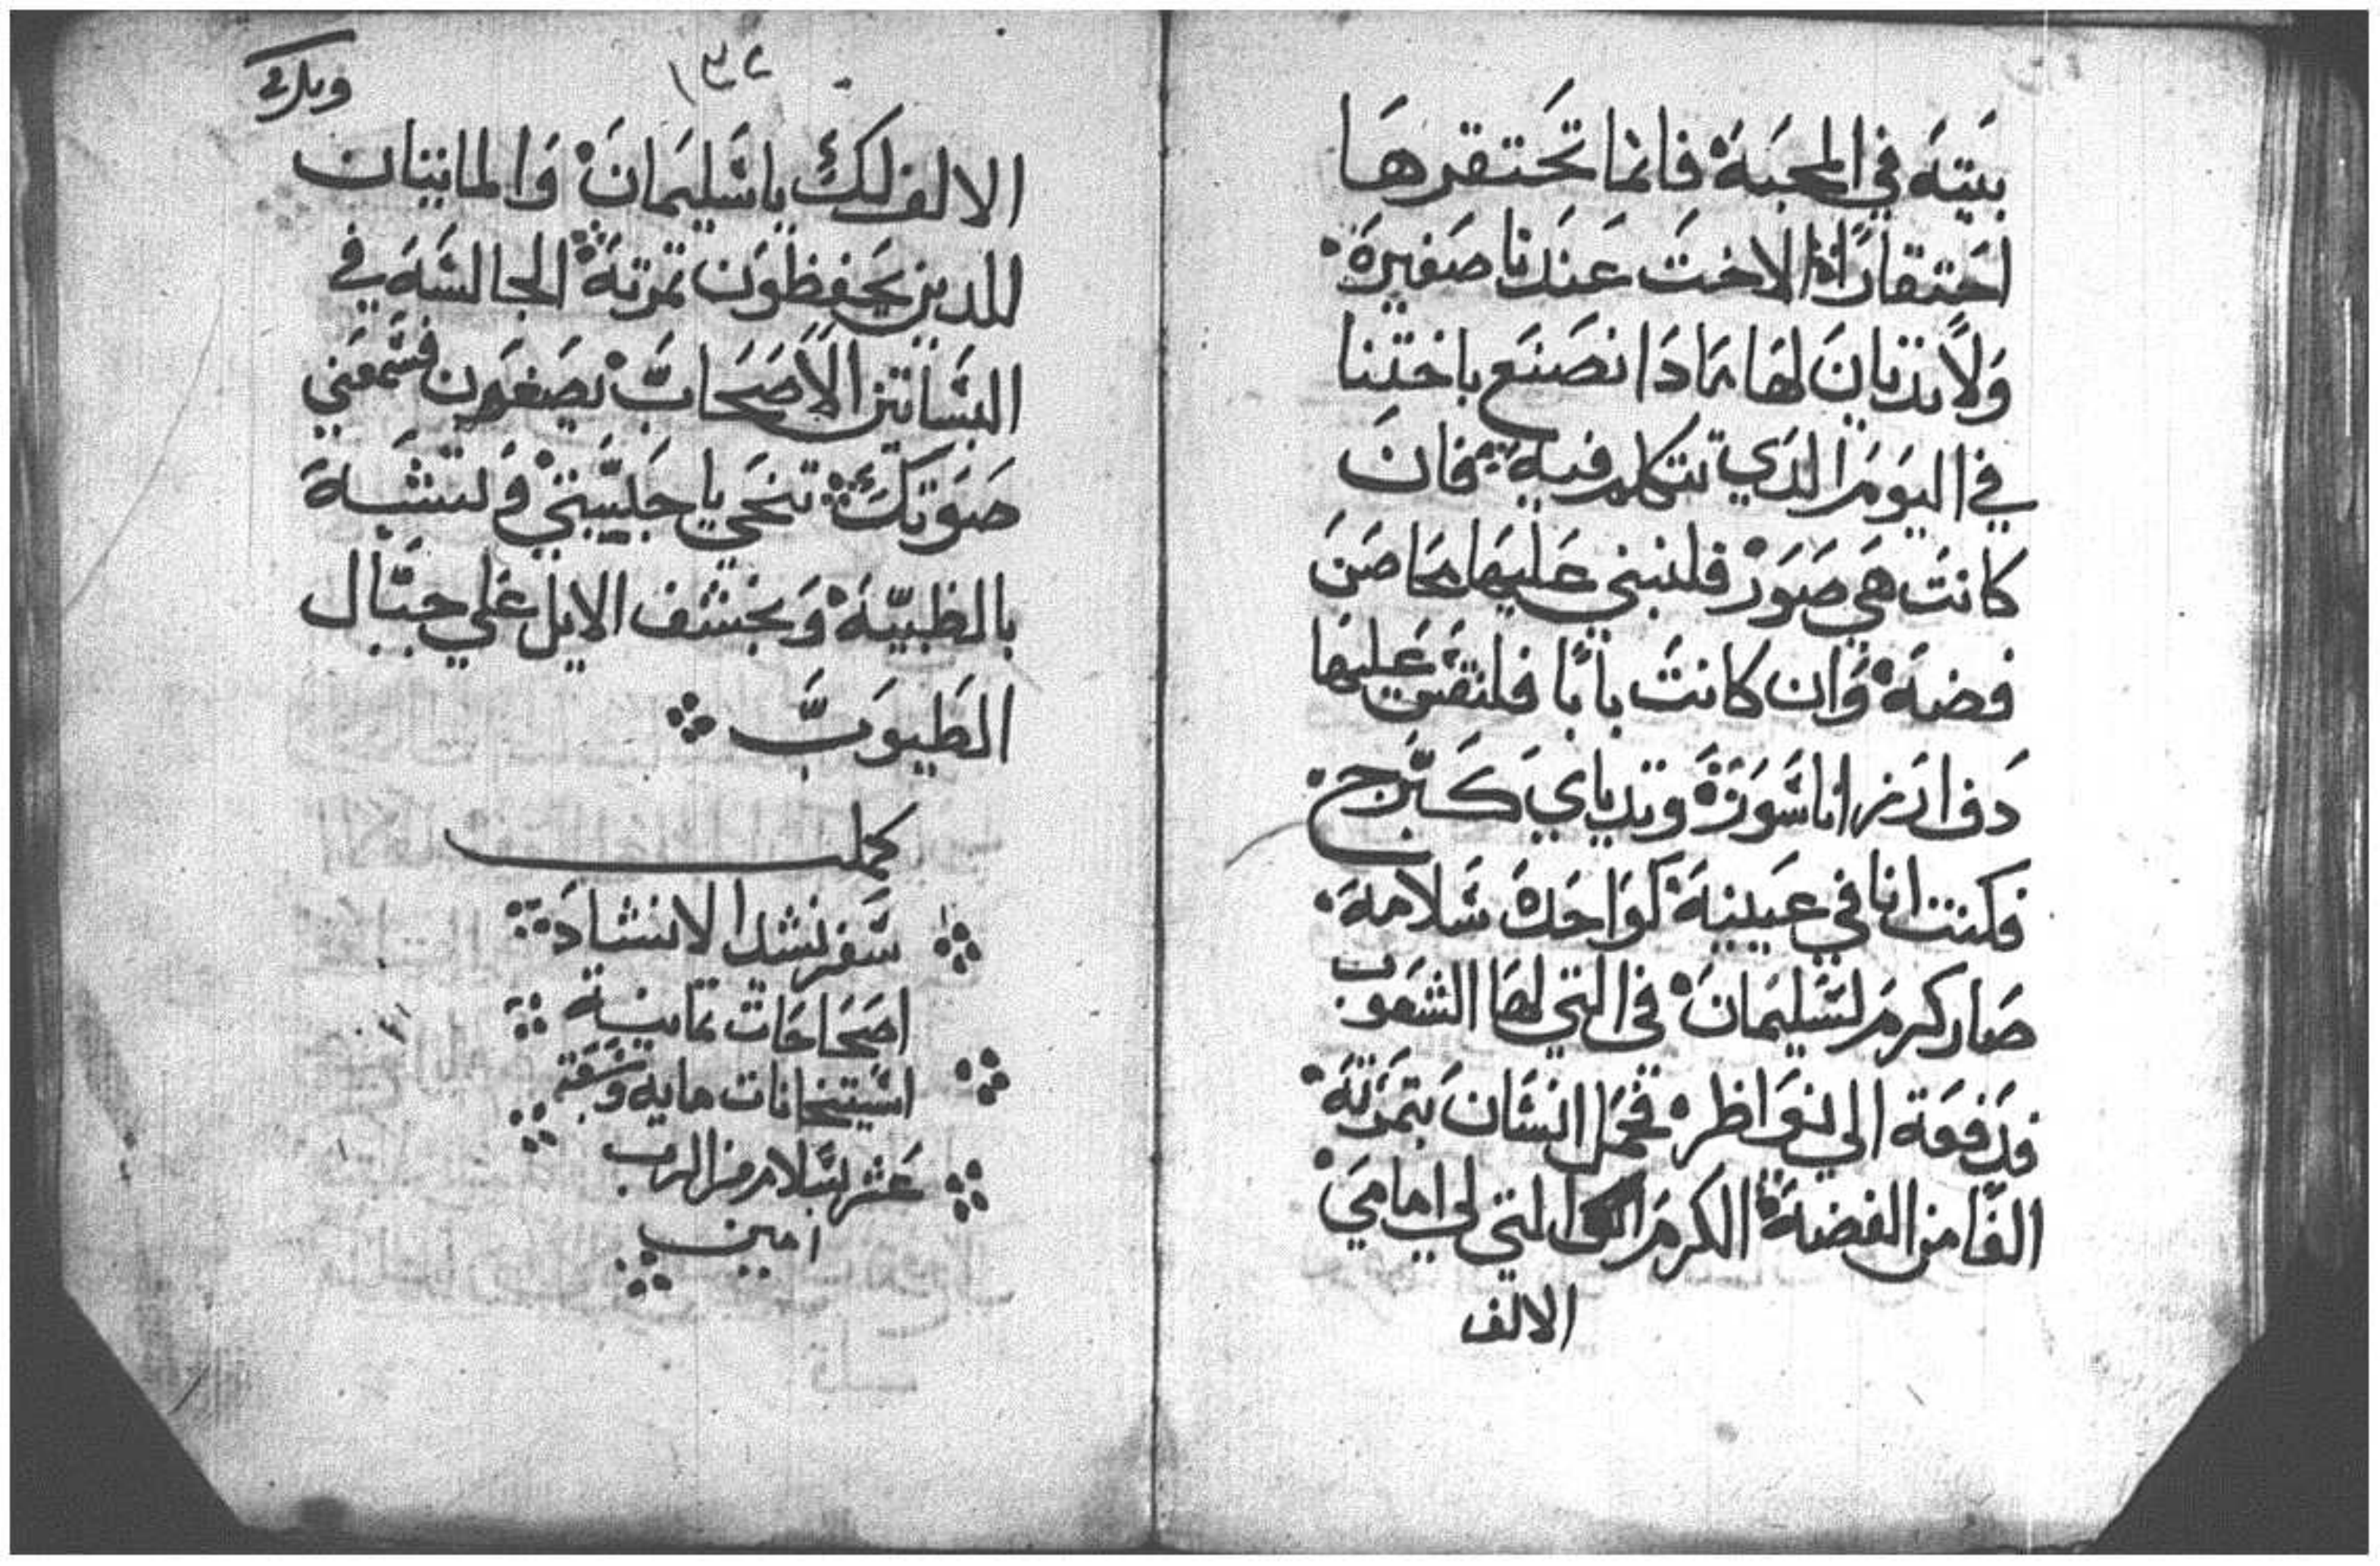 بيته في المحبة فانما تحتقرها
احتقارًا الاخت عندنا صغيرة
ولا ثديان لها ماذا نصنع باختنا
في اليوم الذي تتكلم فيه فان
كانت هي صور فلنبني عليها محاصن
فضة وان كانت بابًا فلنقش عليها
دف ارز انا سورة وثدياي كبرج
فكنت انا في عينية كواحدة سلامة
صار كرم لسليمان في التي لها الشعوب
فدفعة الي نواظره فحمل انسان بثمرته
الفا من الفضة الكرم التي لي امامي
الالف
١٣٤
وبارك
الالف لك يا سليمان والماتيان
للدين يحفظون ثمرته الجالسة في
البساتين الاصحاب يصغون فسمعني
صوتك تنحي يا حبيبي ولتشبه
بالظبية وبخشف الايل علي جبال
الطيوب
كملت
سفر نشد الانشاد
اصحاحات ثمانية
استيخانات ماية وستة
عشر بسلام من الرب
امين